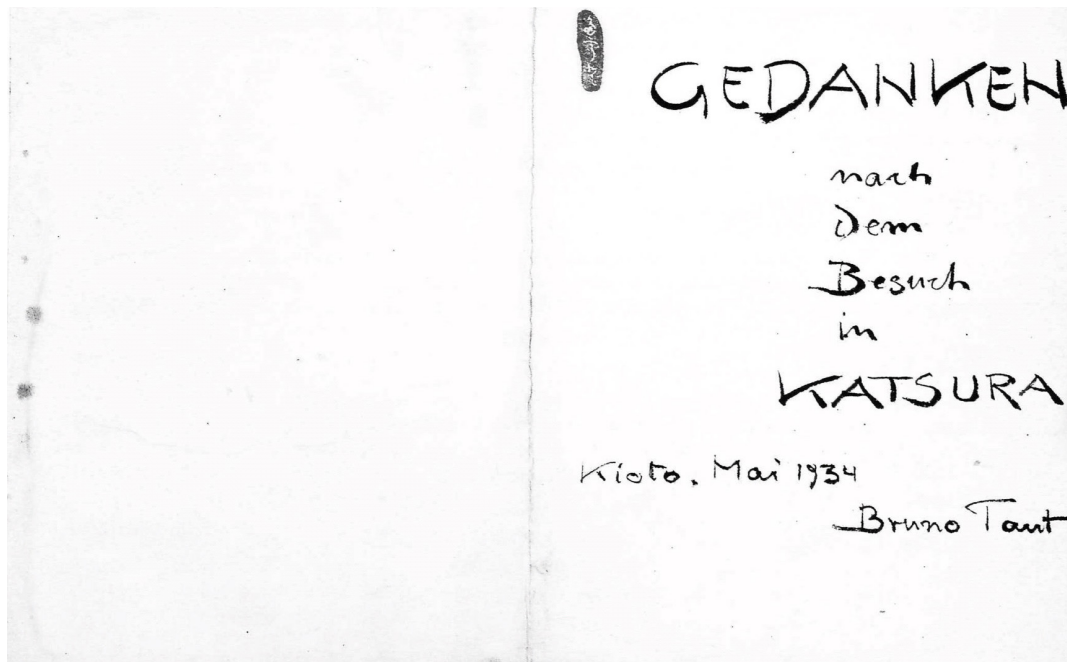 GEDANKEN
nach
Dem
Besuch
in
KATSURA
Kioto, Mai 1934
Bruno Taut